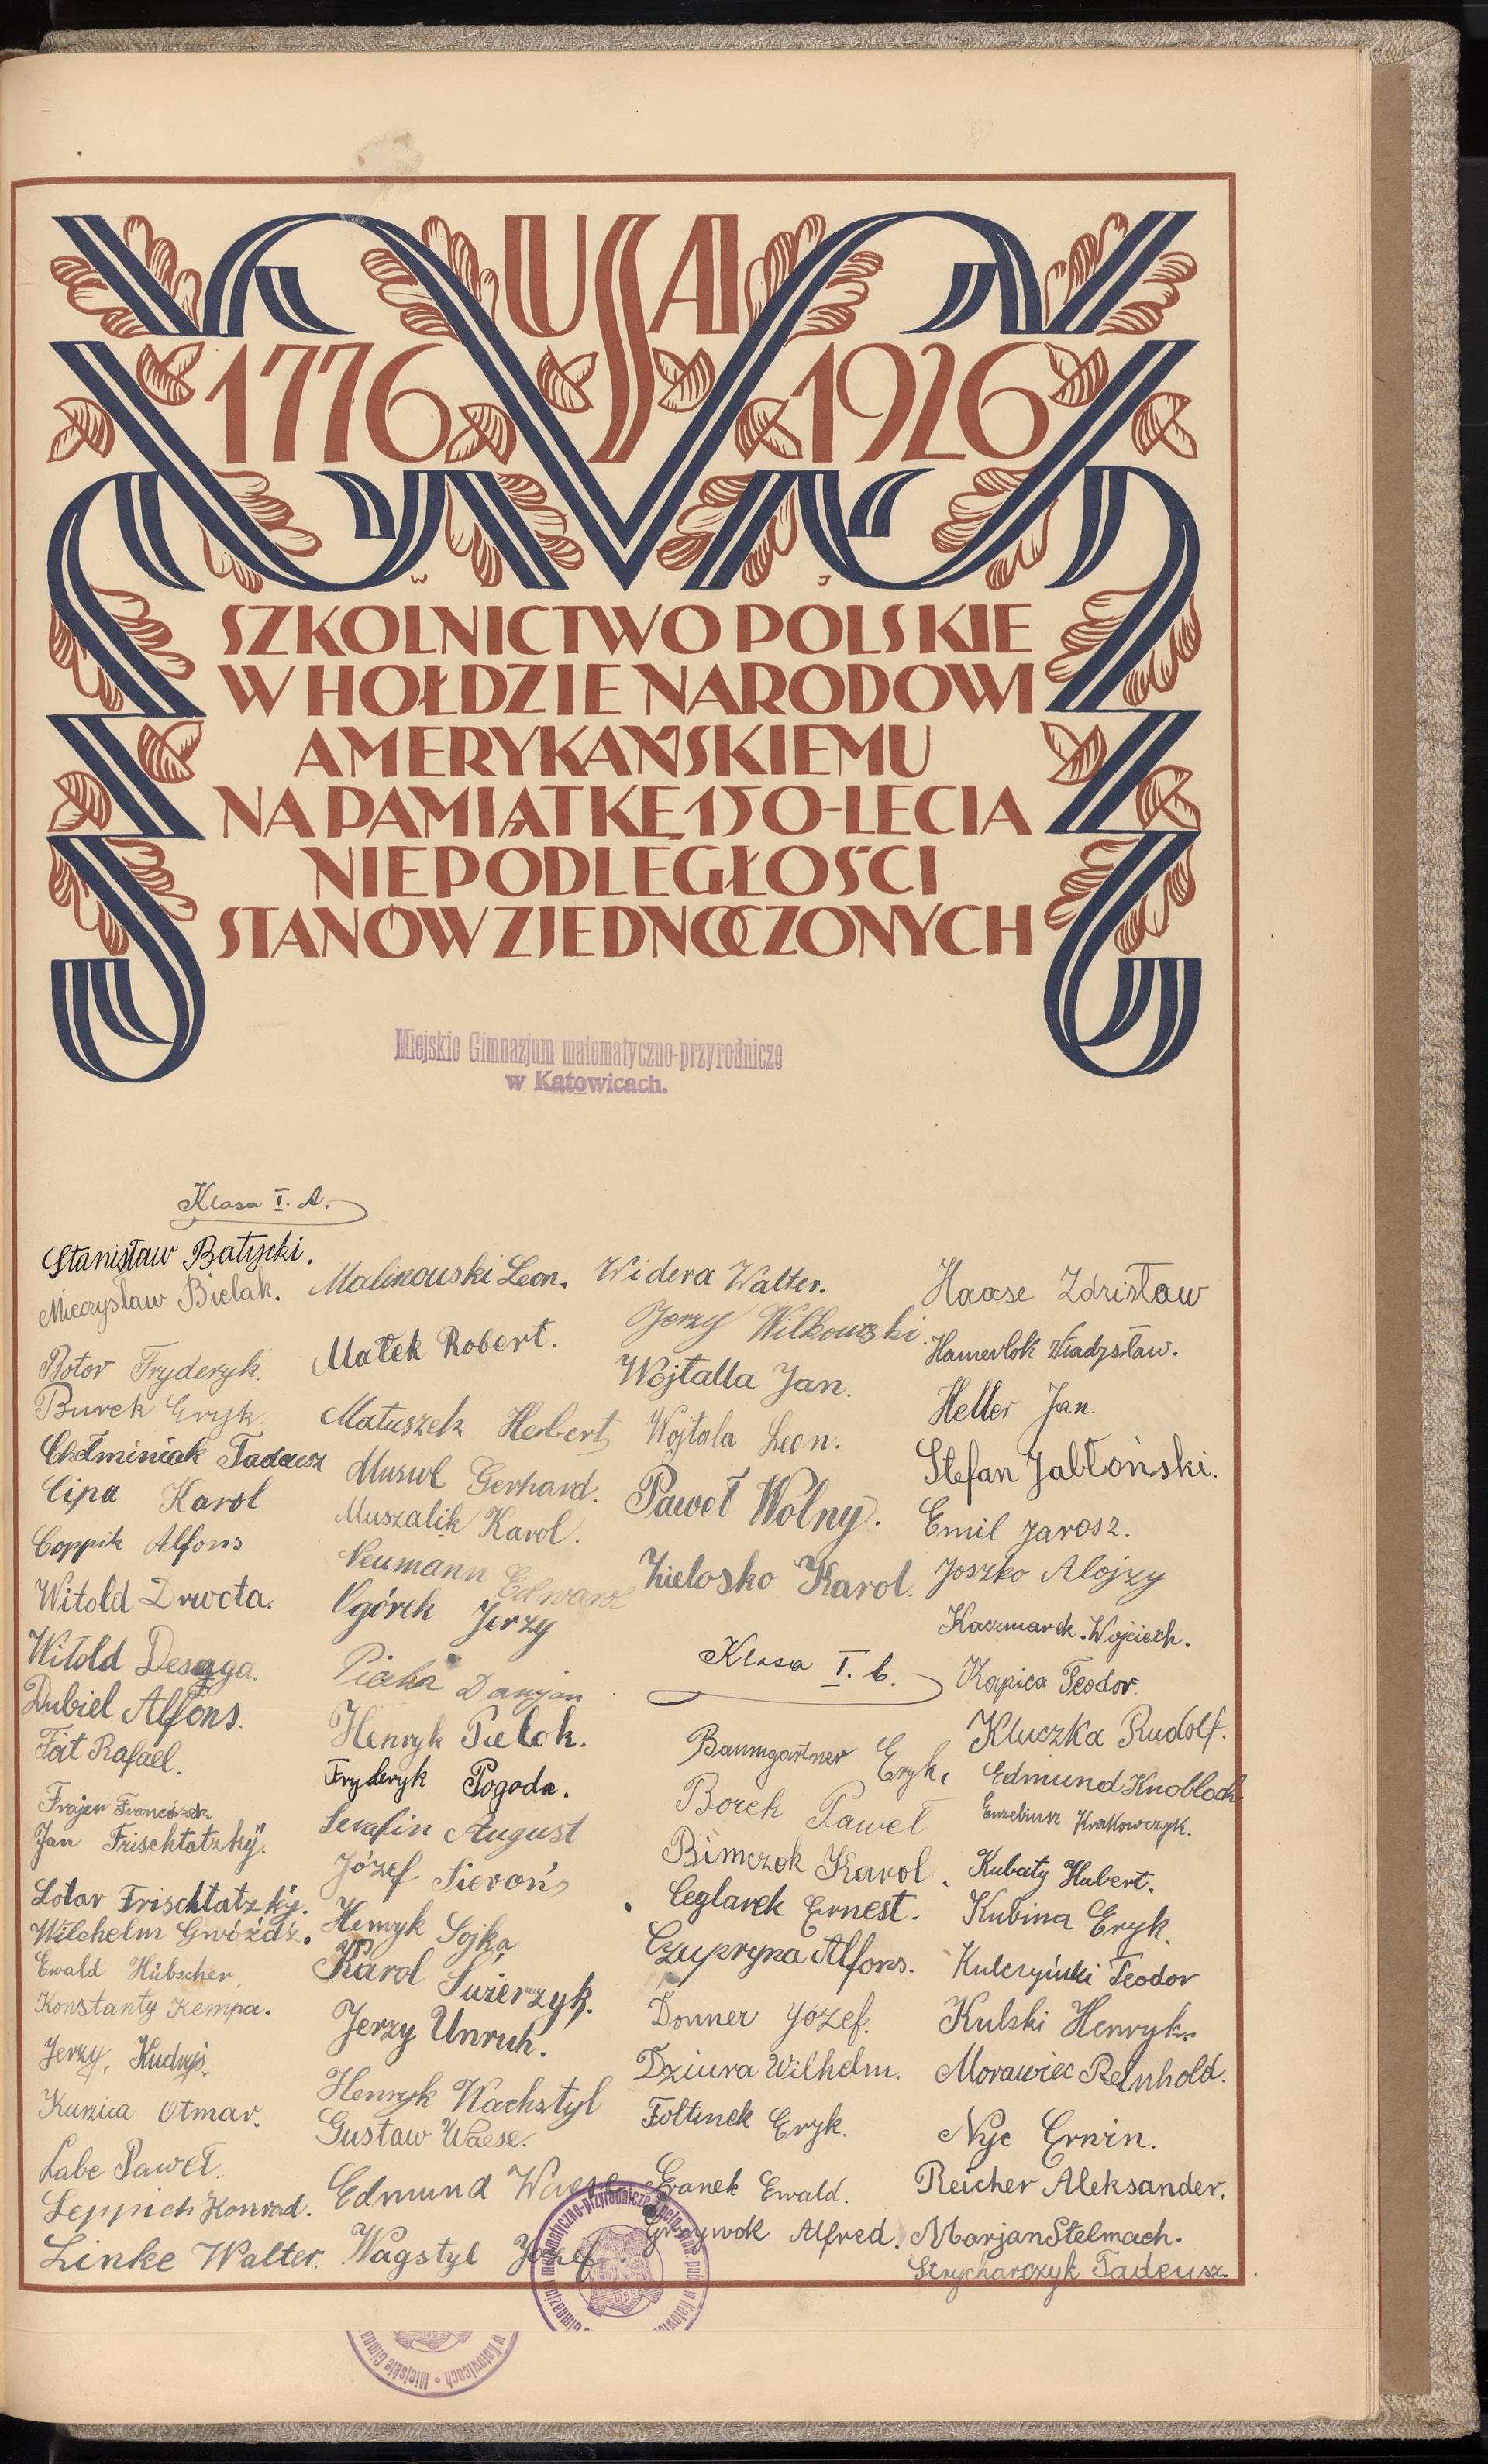 USA
1776 1926
W J
SZKOLNICTWO POLSKIE
W HOŁDZIE NARODOWI
AMERYKAŃSKIEMU
NA PAMIĄTKĘ 150-LECIA
NIEPODLEGŁOŚCI
STANÓW ZJEDNOCZONYCH
Miejskie Gimnazjum matematyczno-przyrodnicze
w Katowicach.
Klasa I. A.
Stanisław Batycki.
Mieczysław Bielak.
Botor Fryderyk.
Burek Eryk.
Chełminiak Tadeusz
Cipa Karol
Coppik Alfons
Witold Drwota.
Witold Desaga.
Dubiel Alfons.
Fait Rafael.
Frajer Franciszek
Jan Frischtatzký.
Lotar Frischtatzký.
Wilchelm Gwóźdź.
Ewald Hübscher.
Konstanty Kempa.
Jerzy Kudryś.
Kurzica Otmar.
Labe Paweł.
Leppich Konrad.
Linke Walter.
Malinowski Leon.
Małek Robert.
Matuszek Herbert
Musioł Gerhard.
Muszalik Karol.
Neumann Edward
Ogórek Jerzy
Piecha Damjan
Henryk Pielok.
Fryderyk Pogoda.
Serafin August
Józef Sieroń
Henryk Sojka
Karol Świerzyk.
Jerzy Unruh.
Henryk Wachstyl
Gustaw Waese.
Edmund Waese
Wagstyl Józef.
Widera Walter.
Jerzy Witkowski.
Wojtalla Jan.
Wojtala Leon.
Paweł Wolny.
Zielosko Karol.
Klasa I. b.
Baumgartner Eryk.
Borek Paweł
Bimczok Karol.
Ceglarek Ernest.
Czupryna Alfons.
Donner Józef.
Dziura Wilhelm.
Foltinek Eryk.
Franek Ewald.
Grzywok Alfred.
Haase Zdzisław
Hamerlok Władysław.
Heller Jan.
Stefan Jabłoński.
Emil Jarosz.
Joszko Alojzy
Kaczmarek Wojciech.
Kapica Teodor.
Kluczka Rudolf.
Edmund Knobloch
Euzebiusz Krakowczyk.
Kubaty Hubert.
Kubina Eryk.
Kulczyński Teodor
Kulski Henryk.
Morawiec Reinhold.
Nyc Erwin.
Reicher Aleksander.
Marjan Stelmach.
Strycharczyk Tadeusz.
w Katowicach • Miejskie Gimna